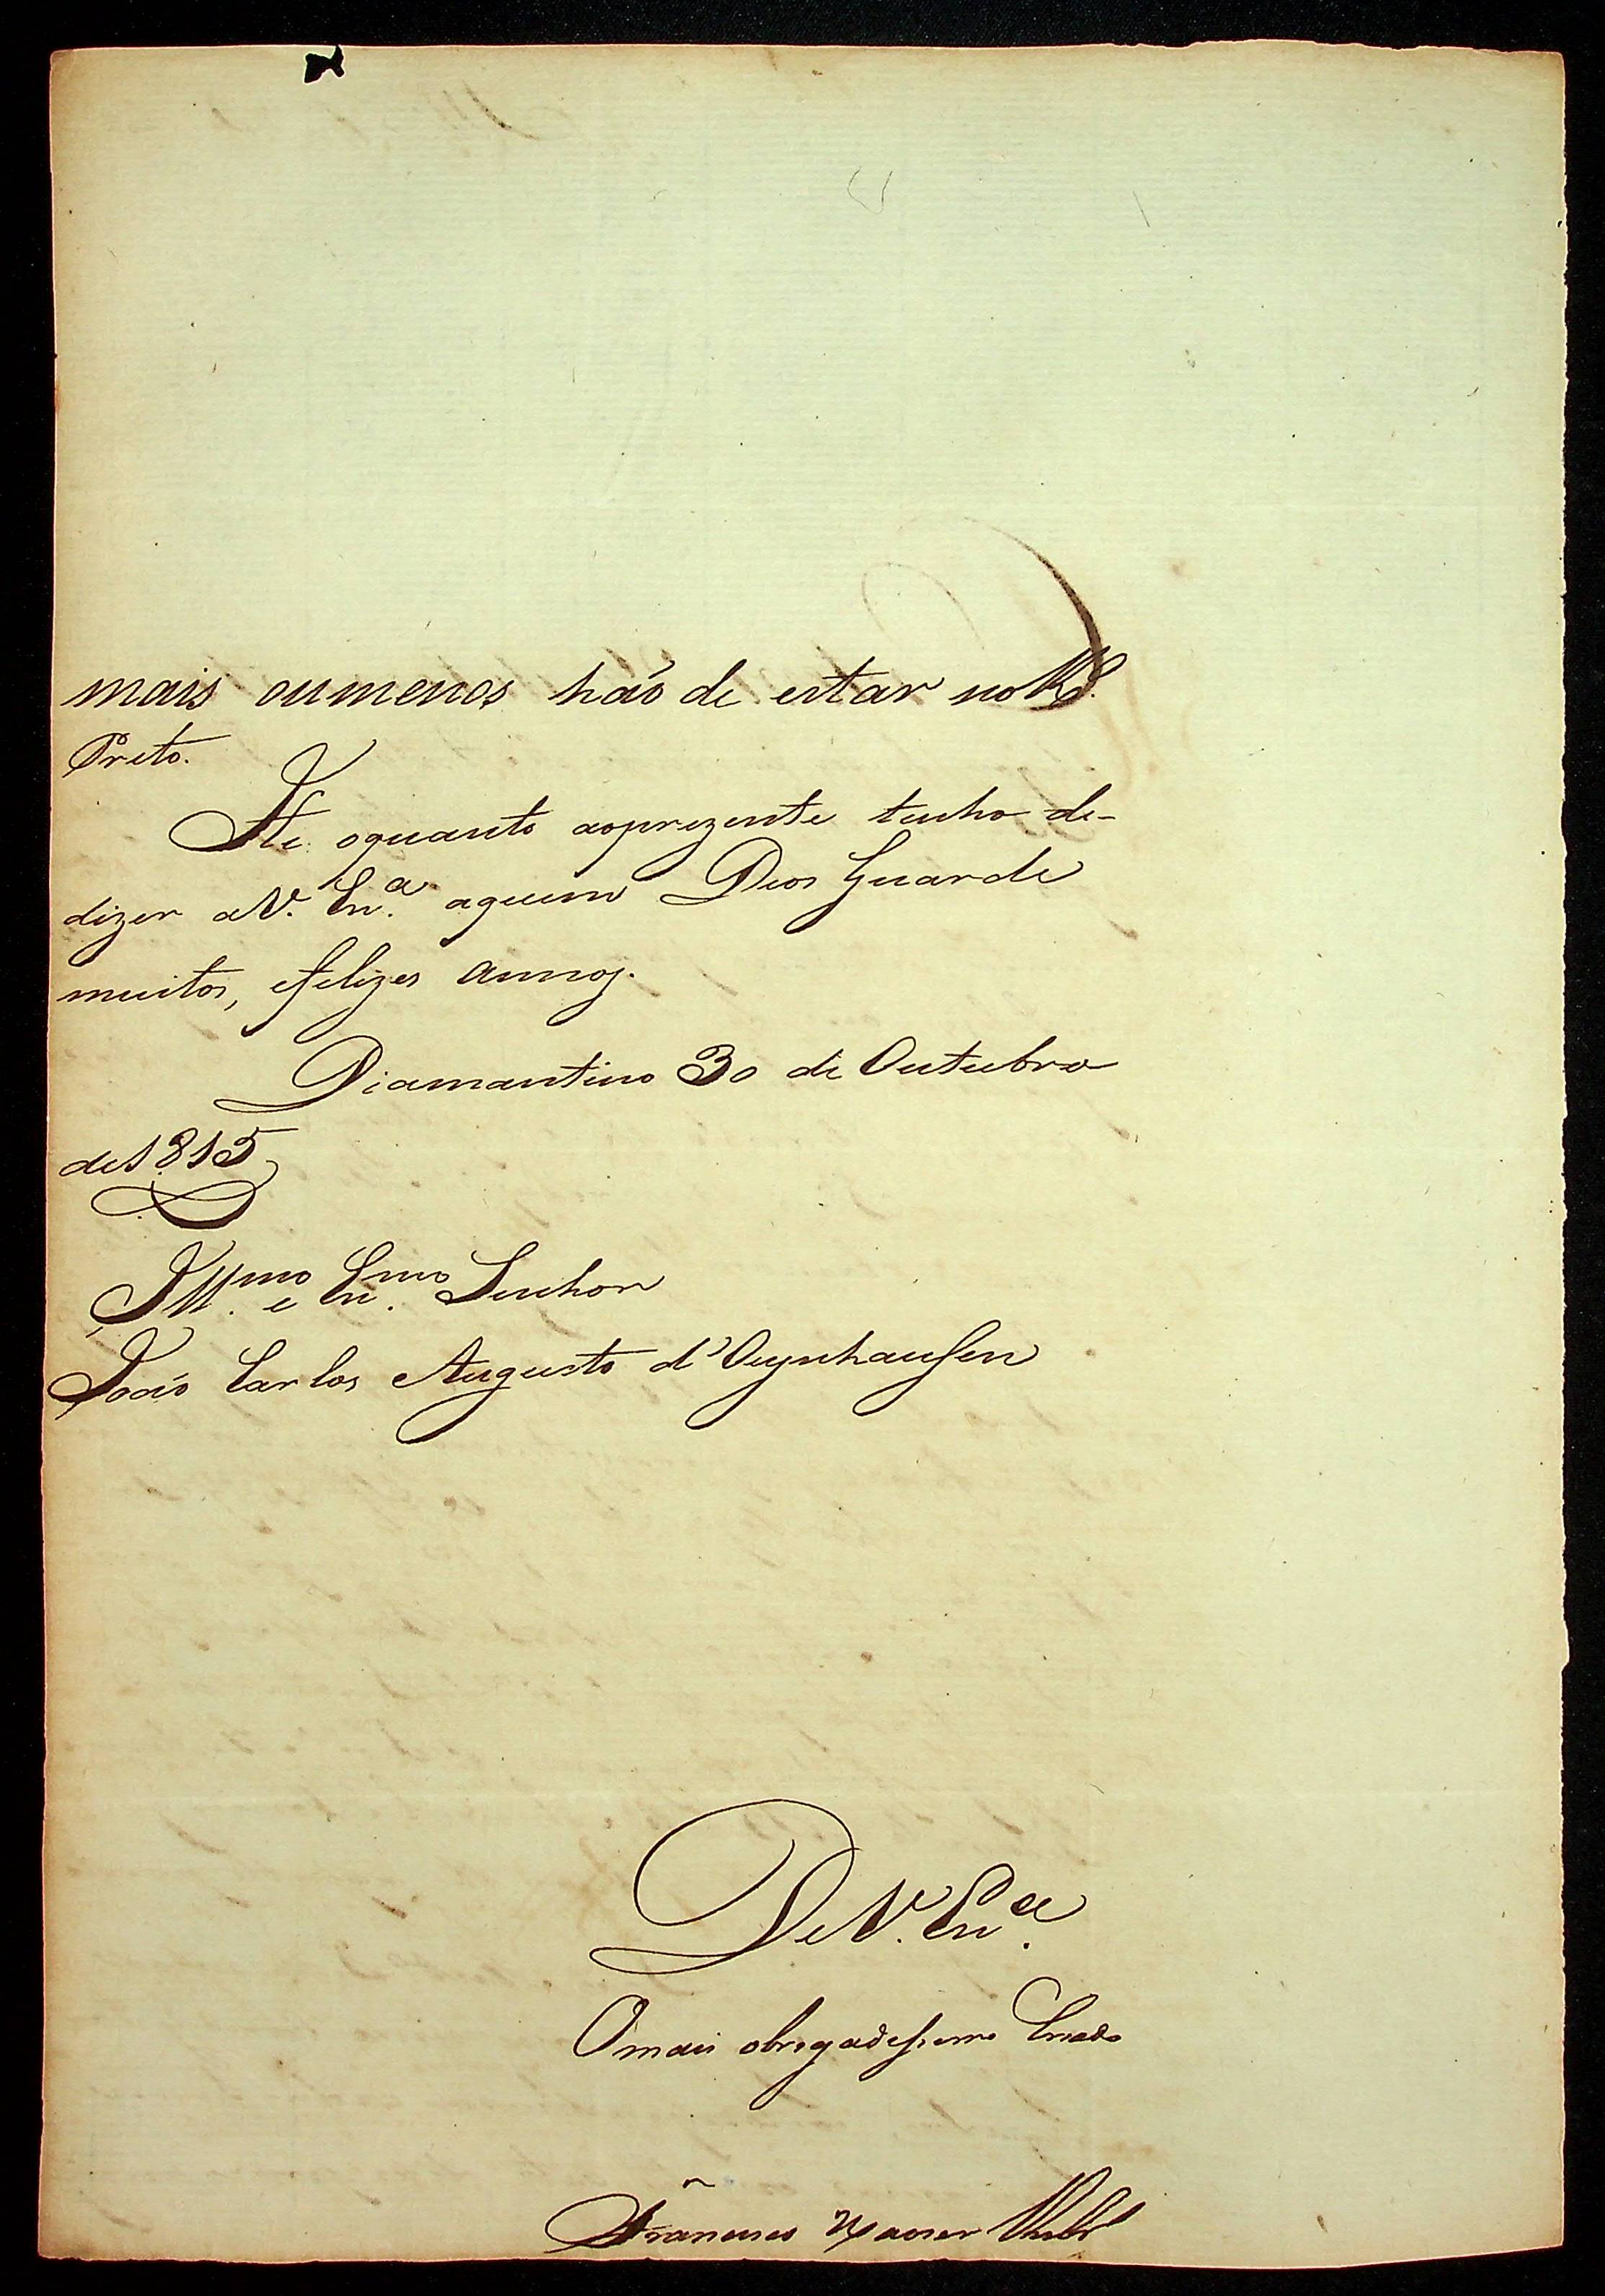 mais oumenos háo de estar no R.
Preto.
He oquanto aoprezente tenho de-
dizer aV. Ex.ª aquem Deos Guarde
muitos, efelizes annos.
Diamantino 30 de Outubro
de1815
Ill.mo e Ex.mo Senhor
Joáo Carlos Augusto d'Oeynhausen
DeV. Ex.ª
Omais obrigadessimo Criado
Francisco Xavier